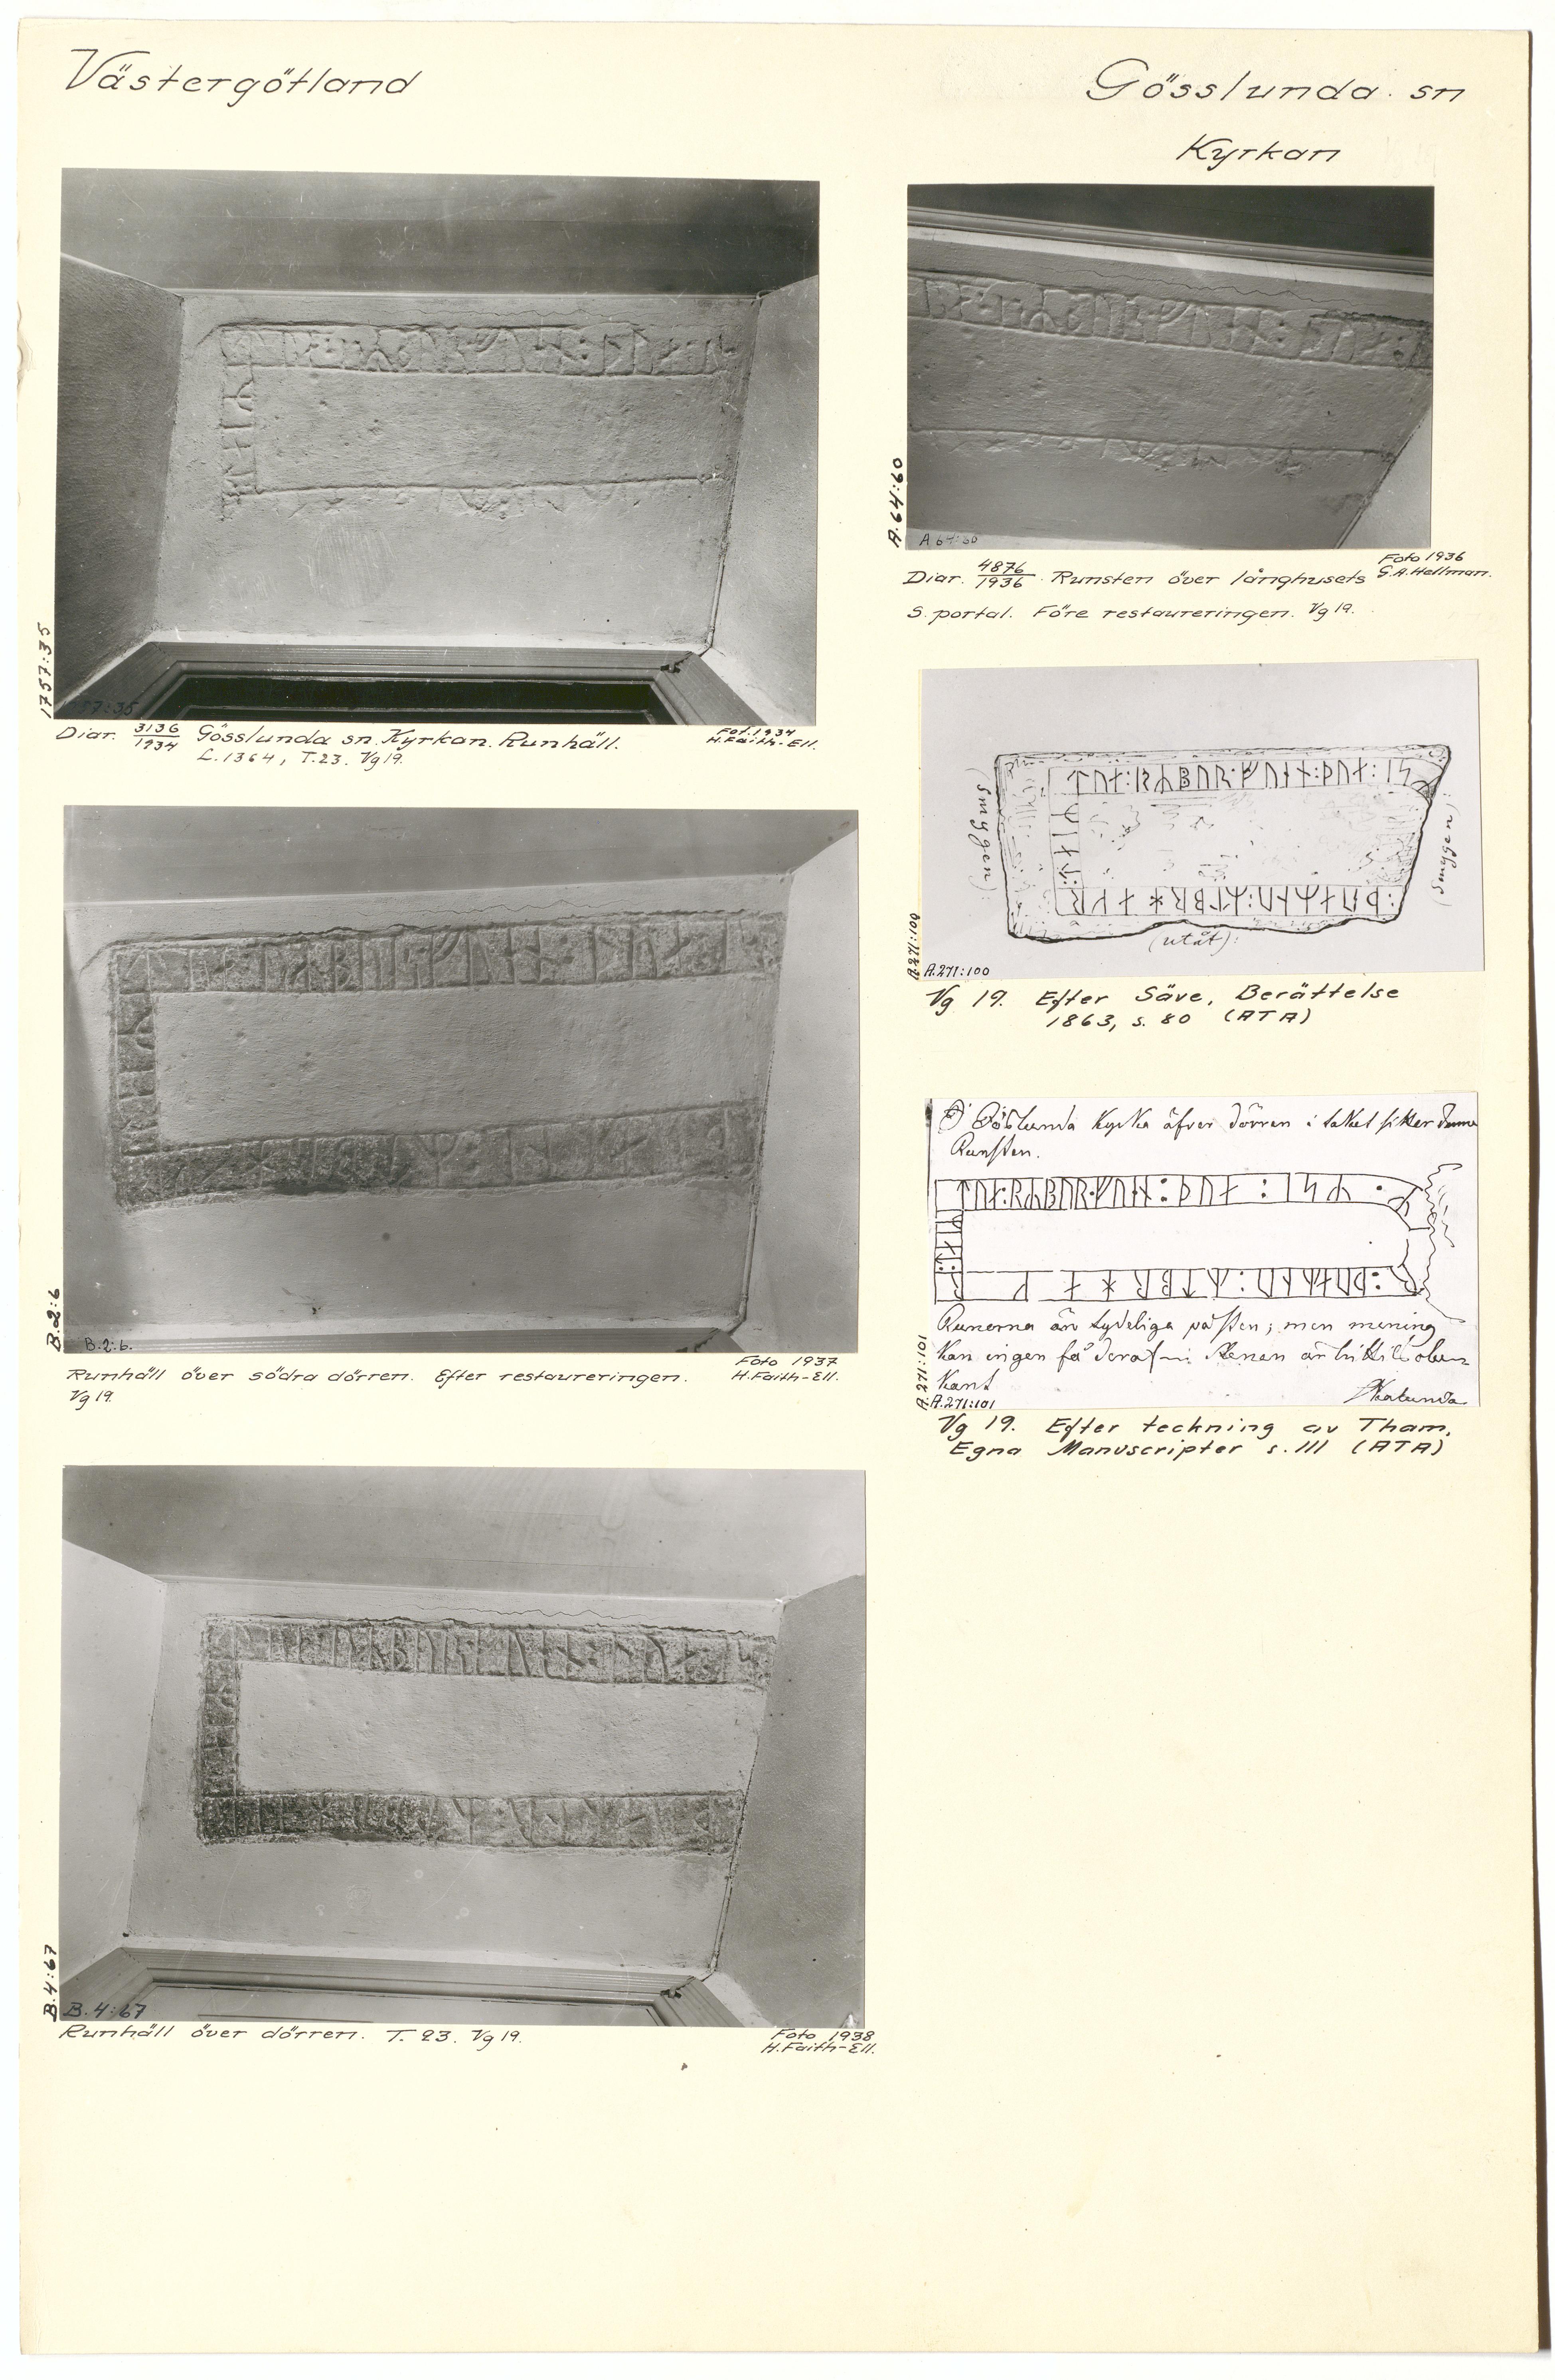 Västergötland
Gösslunda. sn
Kyrkan
1757:35
Diar. 3136/1934 Gösslunda sn. Kyrkan. Runhäll.
L. 1364, T. 23. Vg 19.
Fot. 1934
H. Faith-Ell.
A. 64:60
Diar. 4876/1936. Runsten över långhusets
S. portal. Före restaureringen. Vg 19.
Foto 1936
G. A. Hellman.
B. 2:6
B. 2:6.
Runhäll över södra dörren. Efter restaureringen.
Vg 19.
Foto 1937
H. Faith-Ell.
(smygen)
(smygen)
(utåt):
A. 271:100
A. 271:100
Vg 19. Efter Säve, Berättelse
1863, s. 80 (ATA)
Kyrka äfver dörren i taket sitter denna
Runsten.
Runerna än tydeliga på sten; men mening
kan ingen få
A. 271:101
A. 271:101
Vg 19. Efter teckning av Tham,
Egna Manuscripter s. 111 (ATA)
B. 4:67
B. 4:67
Runhäll över dörren. T. 23. Vg 19.
Foto 1938
H. Faith-Ell.